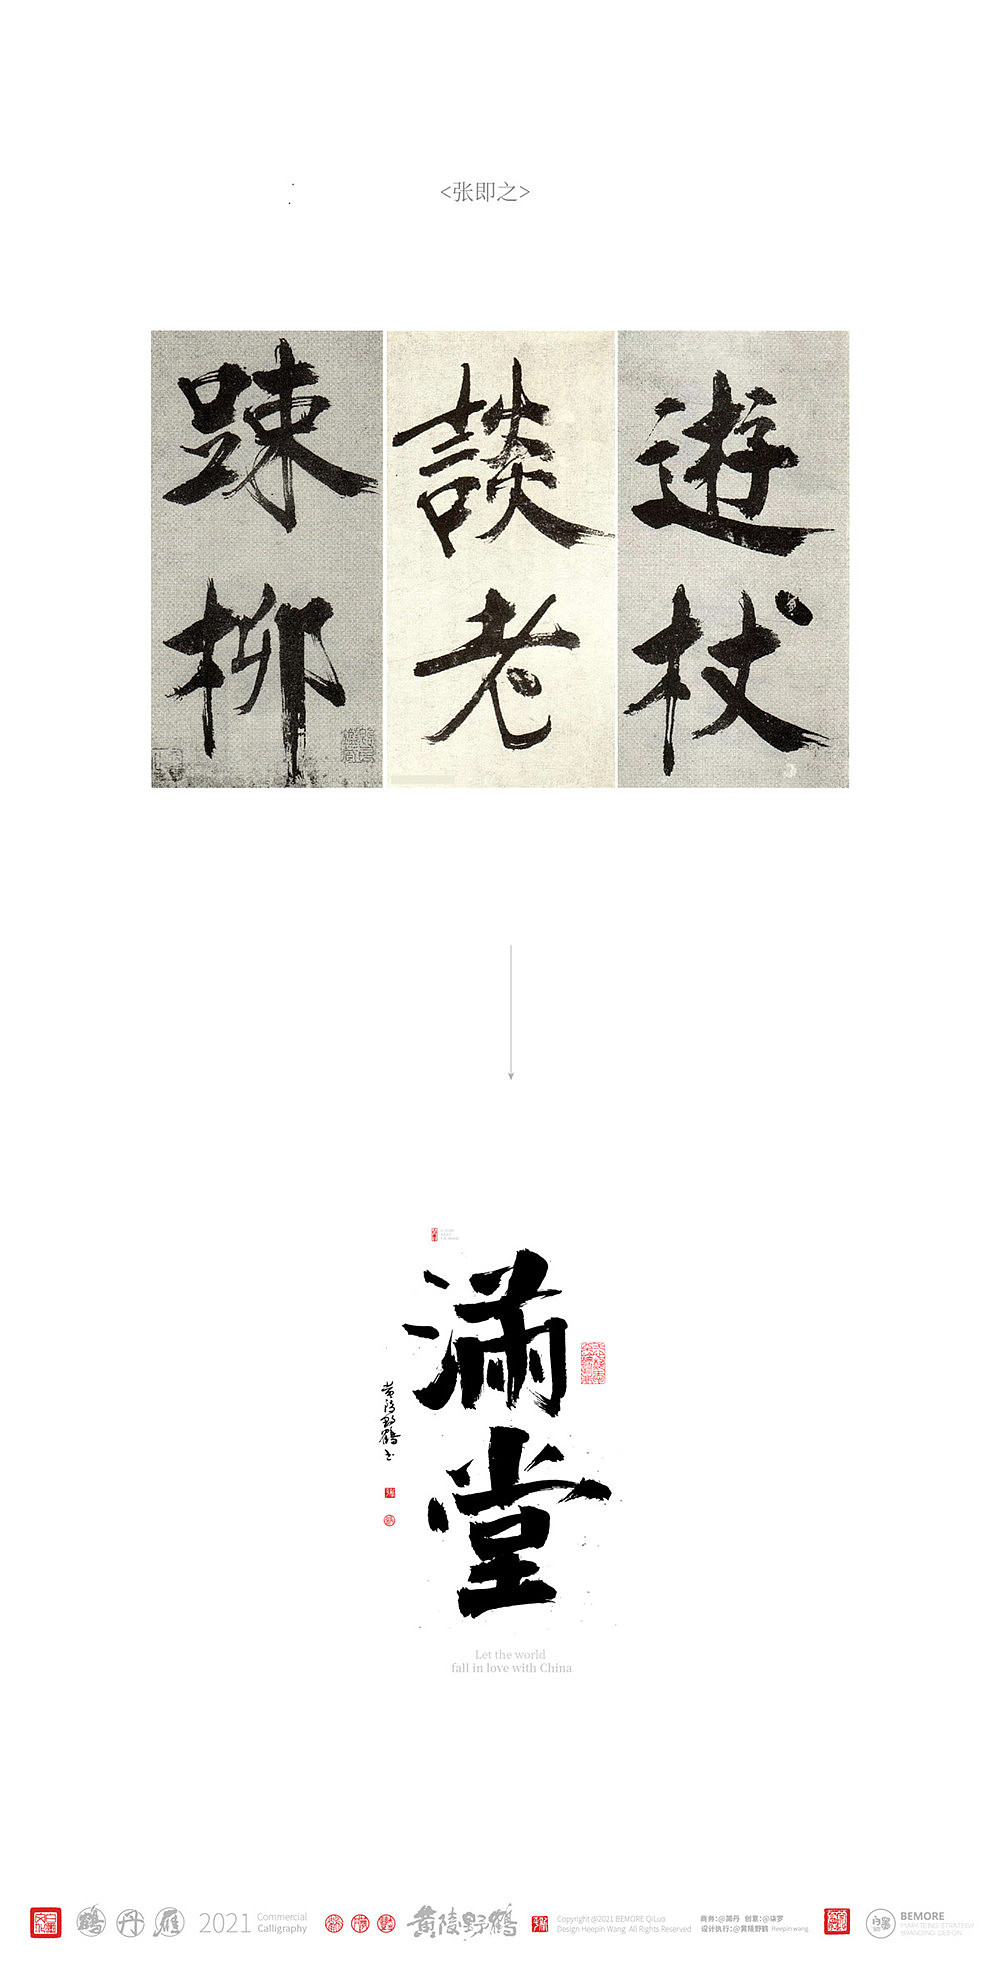 <张即之>
踈
柳
談
老
遊
杖
滿
堂
黄陵野鶴书
Let the world
fall in love with China
鶴丹雁
2021
Commercial
Calligraphy
黄陵野鹤
Copyright @2021 BEMORE QiLuo
Design Heepin Wang All Rights Reserved
商务:@简丹 创意:@柒罗
设计执行:@黄陵野鹤 Heepin wang
BEMORE
MARKTEING STRATEGY
BRANDING DESIGN